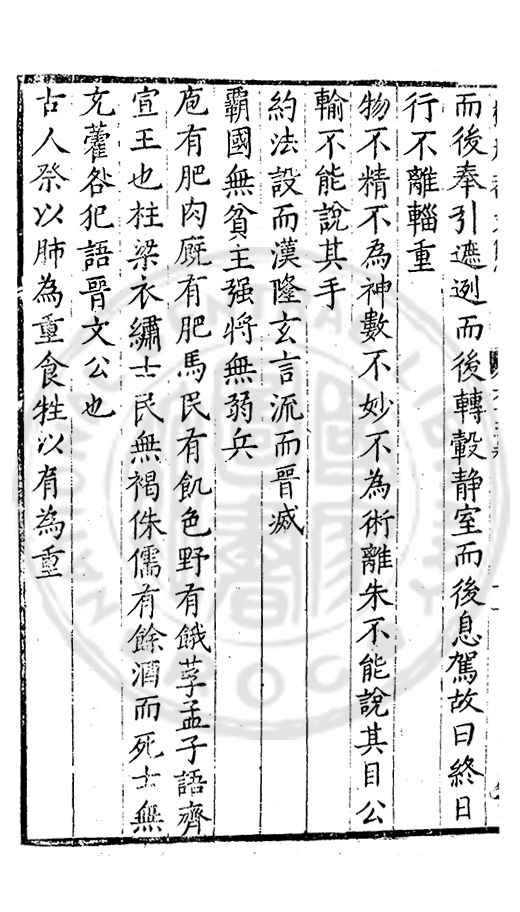 而後奉引遮迾而後轉轂静室而後息駕故曰終日
行不離輜重
物不精不為神數不妙不為術離朱不能說其目公
輸不能說其手
約法設而漢隆玄言流而晉滅
霸國無貧主强將無弱兵
庖有肥肉廐有肥馬民有飢色野有餓莩孟子語齊
宣王也柱梁衣繡士民無褐侏儒有餘酒而死士無
充藿咎犯語晉文公也
古人祭以肺為重食牲以脊為重